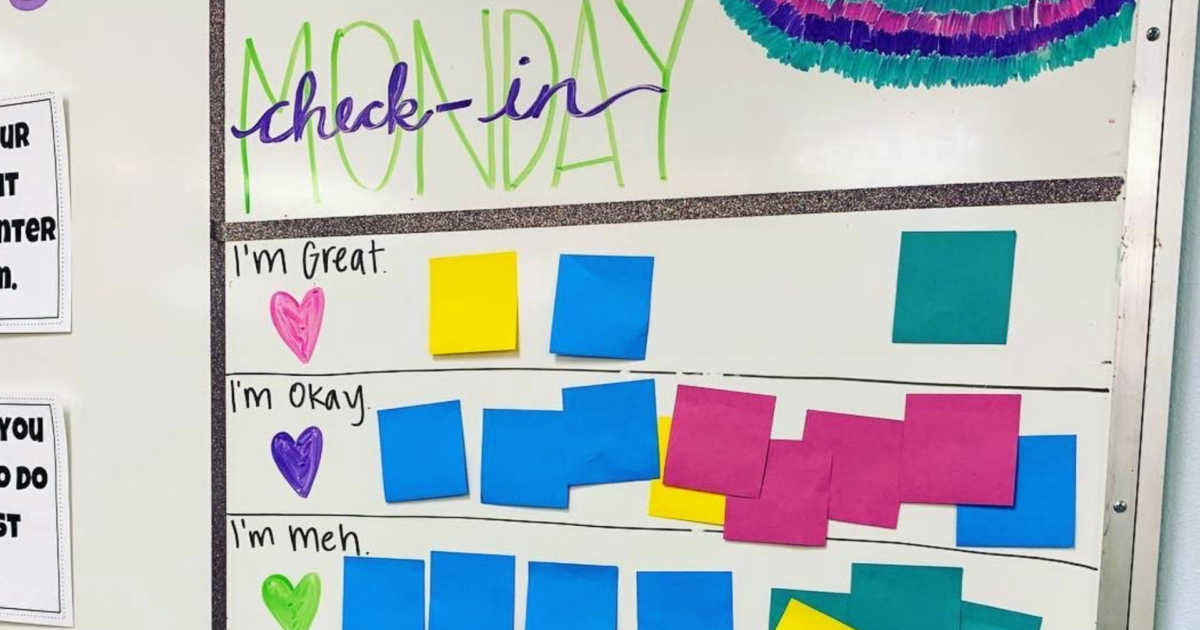 MONDAY
check-in
UR
IT
NTER
I'm Great.
I'm Okay.
YOU
O DO
ST
I'm meh.